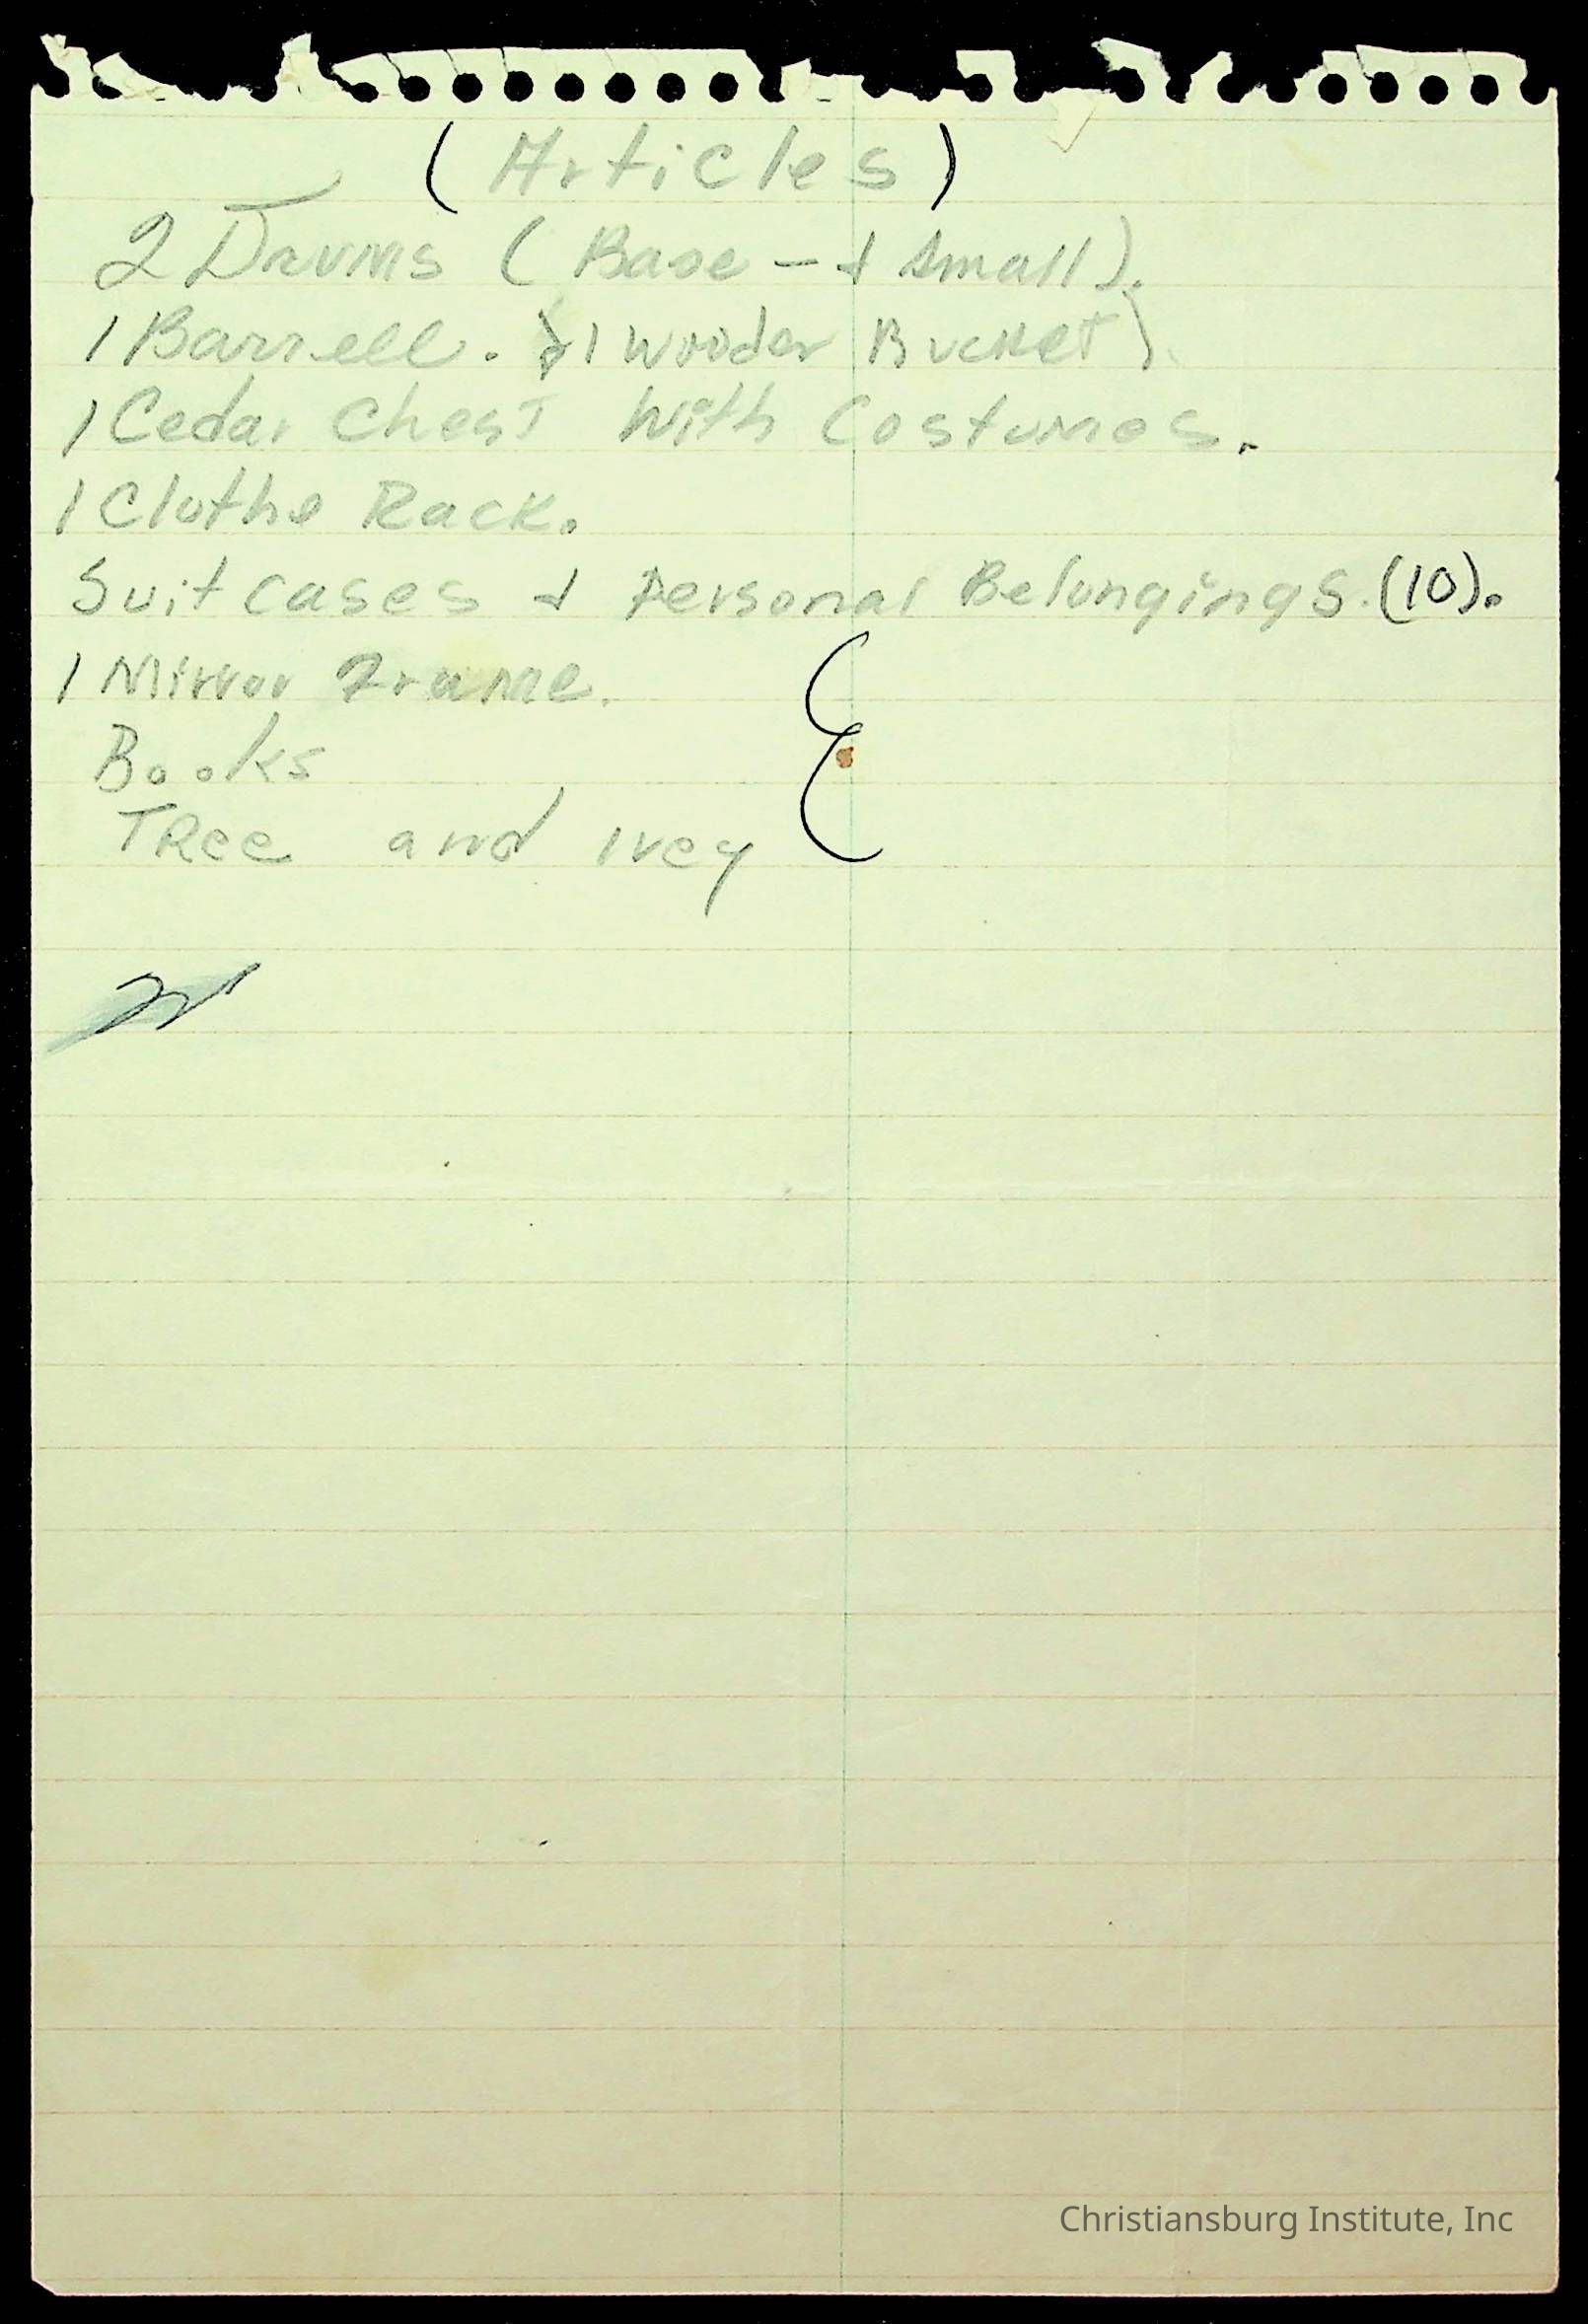 (Articles)
2 Drums (Base - & Small).
1 Barrell. & 1 Wooden Bucket).
1 Cedar Chest With Costumes.
1 Clothe Rack.
Suitcases & Personal Belongings. (10).
1 Mirror Frame.
Books
TRee and ivey
Christiansburg Institute, Inc